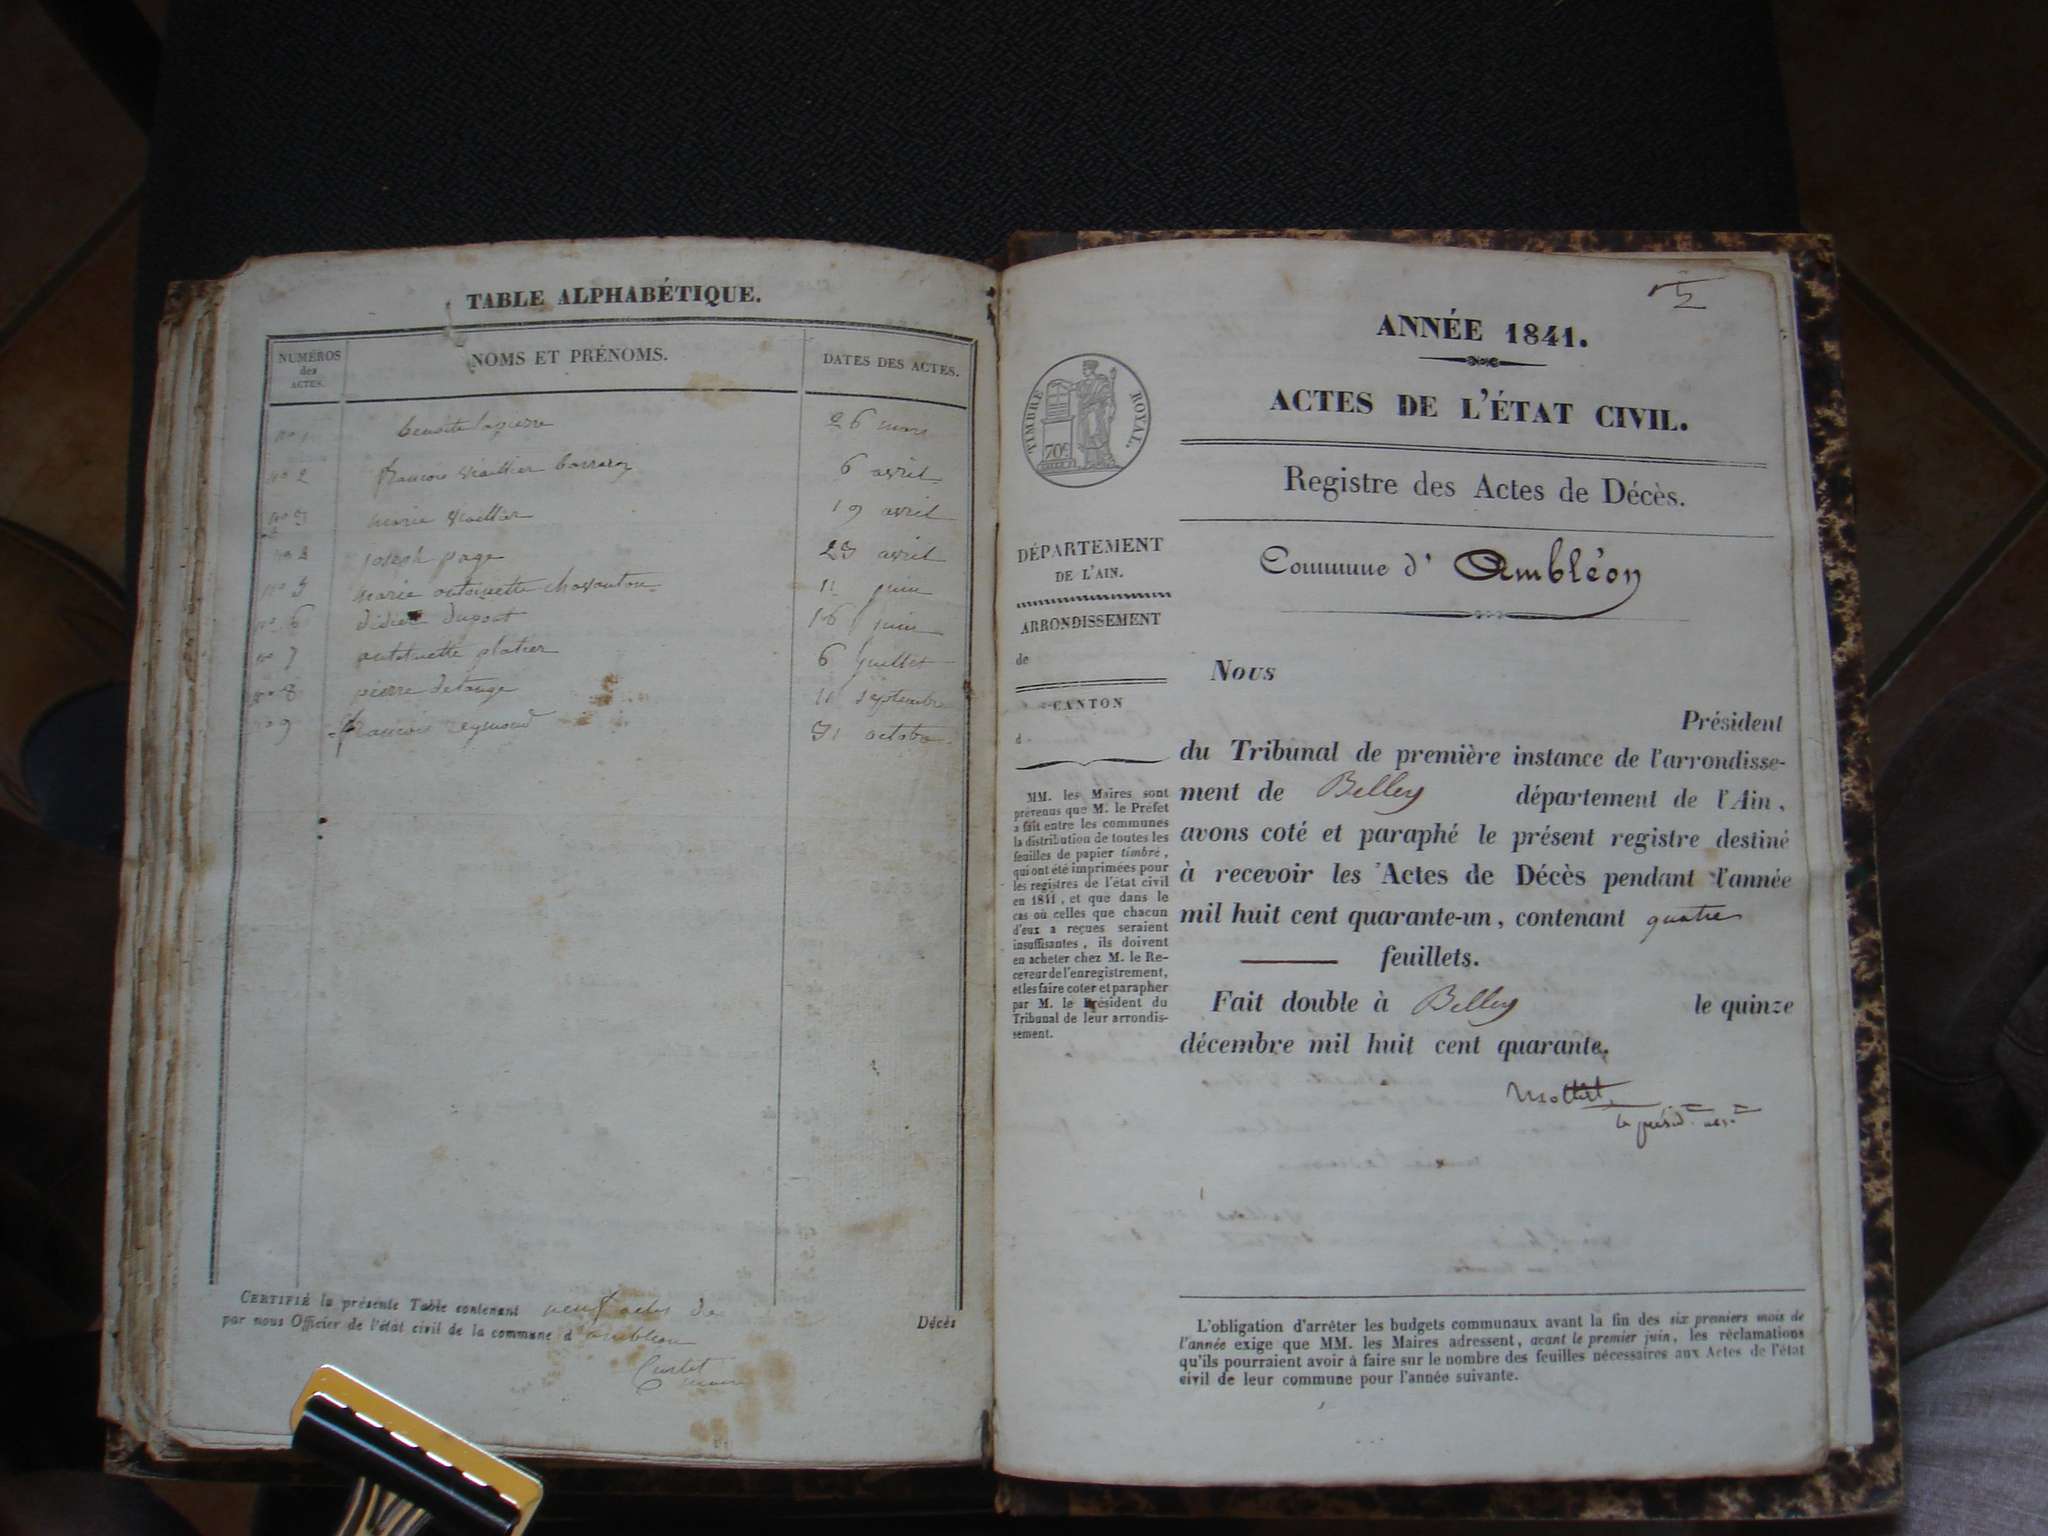 TABLE ALPHABÉTIQUE.
NUMÉROS
des
ACTES.
NOMS ET PRÉNOMS.
DATES DES ACTES.
n° 1 benoite lapierre 26 mars
n° 2 françois 6 avril
n° 3 marie 19 avril
joseph page 23 avril
n° 5 marie antoinette 11 juin
n° 6 didier dupont 16 juin
n° 7 antoinette platier 6 juillet
n° 8 pierre 11 septembre
n° 9 françois reymond 31 octobre
CERTIFIÉ la présente Table contenant neuf actes de Décès
par nous Officier de l'état civil de la commune d'ambléon
maire
ANNÉE 1841.
ACTES DE L'ÉTAT CIVIL.
TIMBRE ROYAL.
70c
Registre des Actes de Décès.
Commune d' Ambléon
DÉPARTEMENT
DE L'AIN.
ARRONDISSEMENT
de
CANTON
d
MM. les Maires sont
prévenus que M. le Préfet
a fait entre les communes
la distribution de toutes les
feuilles de papier timbré,
qui ont été imprimées pour
les registres de l'état civil
en 1841, et que dans le
cas où celles que chacun
d'eux a reçues seraient
insuffisantes, ils doivent
en acheter chez M. le Re-
ceveur de l'enregistrement,
et les faire coter et parapher
par M. le Président du
Tribunal de leur arrondis-
sement.
Nous
Président
du Tribunal de première instance de l'arrondisse-
ment de Belley département de l'Ain,
avons coté et paraphé le présent registre destiné
à recevoir les Actes de Décès pendant l'année
mil huit cent quarante-un, contenant quatre
feuillets.
Fait double à Belley le quinze
décembre mil huit cent quarante.
L'obligation d'arrêter les budgets communaux avant la fin des six premiers mois de
l'année exige que MM. les Maires adressent, avant le premier juin, les réclamations
qu'ils pourraient avoir à faire sur le nombre des feuilles nécessaires aux Actes de l'état
civil de leur commune pour l'année suivante.